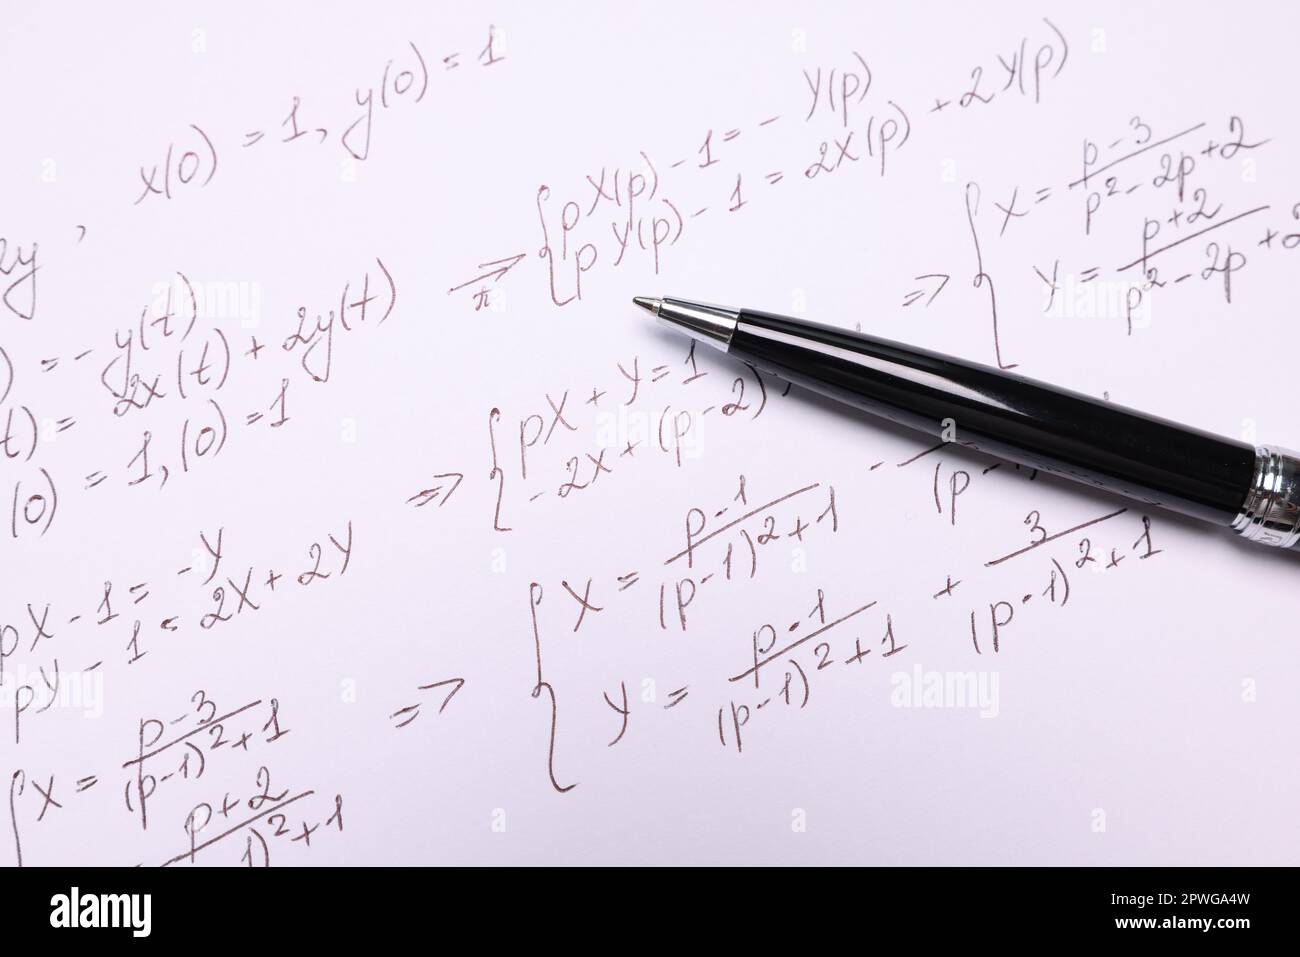 x(0) = 1, y(0) = 1
2y,
) = - y(t)
t) = 2x(t) + 2y(t)
(0) = 1, (0) = 1
=> { pX(p) - 1 = - Y(p)
pY(p) - 1 = 2X(p) + 2Y(p)
=> { X = (p - 3)/(p² - 2p + 2)
Y = (p + 2)/(p² - 2p + 2
pX - 1 = - Y
pY - 1 = 2X + 2Y
=> { pX + Y = 1
- 2X + (p - 2)
{ X = (p - 3)/((p - 1)² + 1)
p + 2
1)² + 1
=> { X = (p - 1)/((p - 1)² + 1) - /(p - 1)
Y = (p - 1)/((p - 1)² + 1) + 3/((p - 1)² + 1)
alamy
Image ID: 2PWGA4W
www.alamy.com